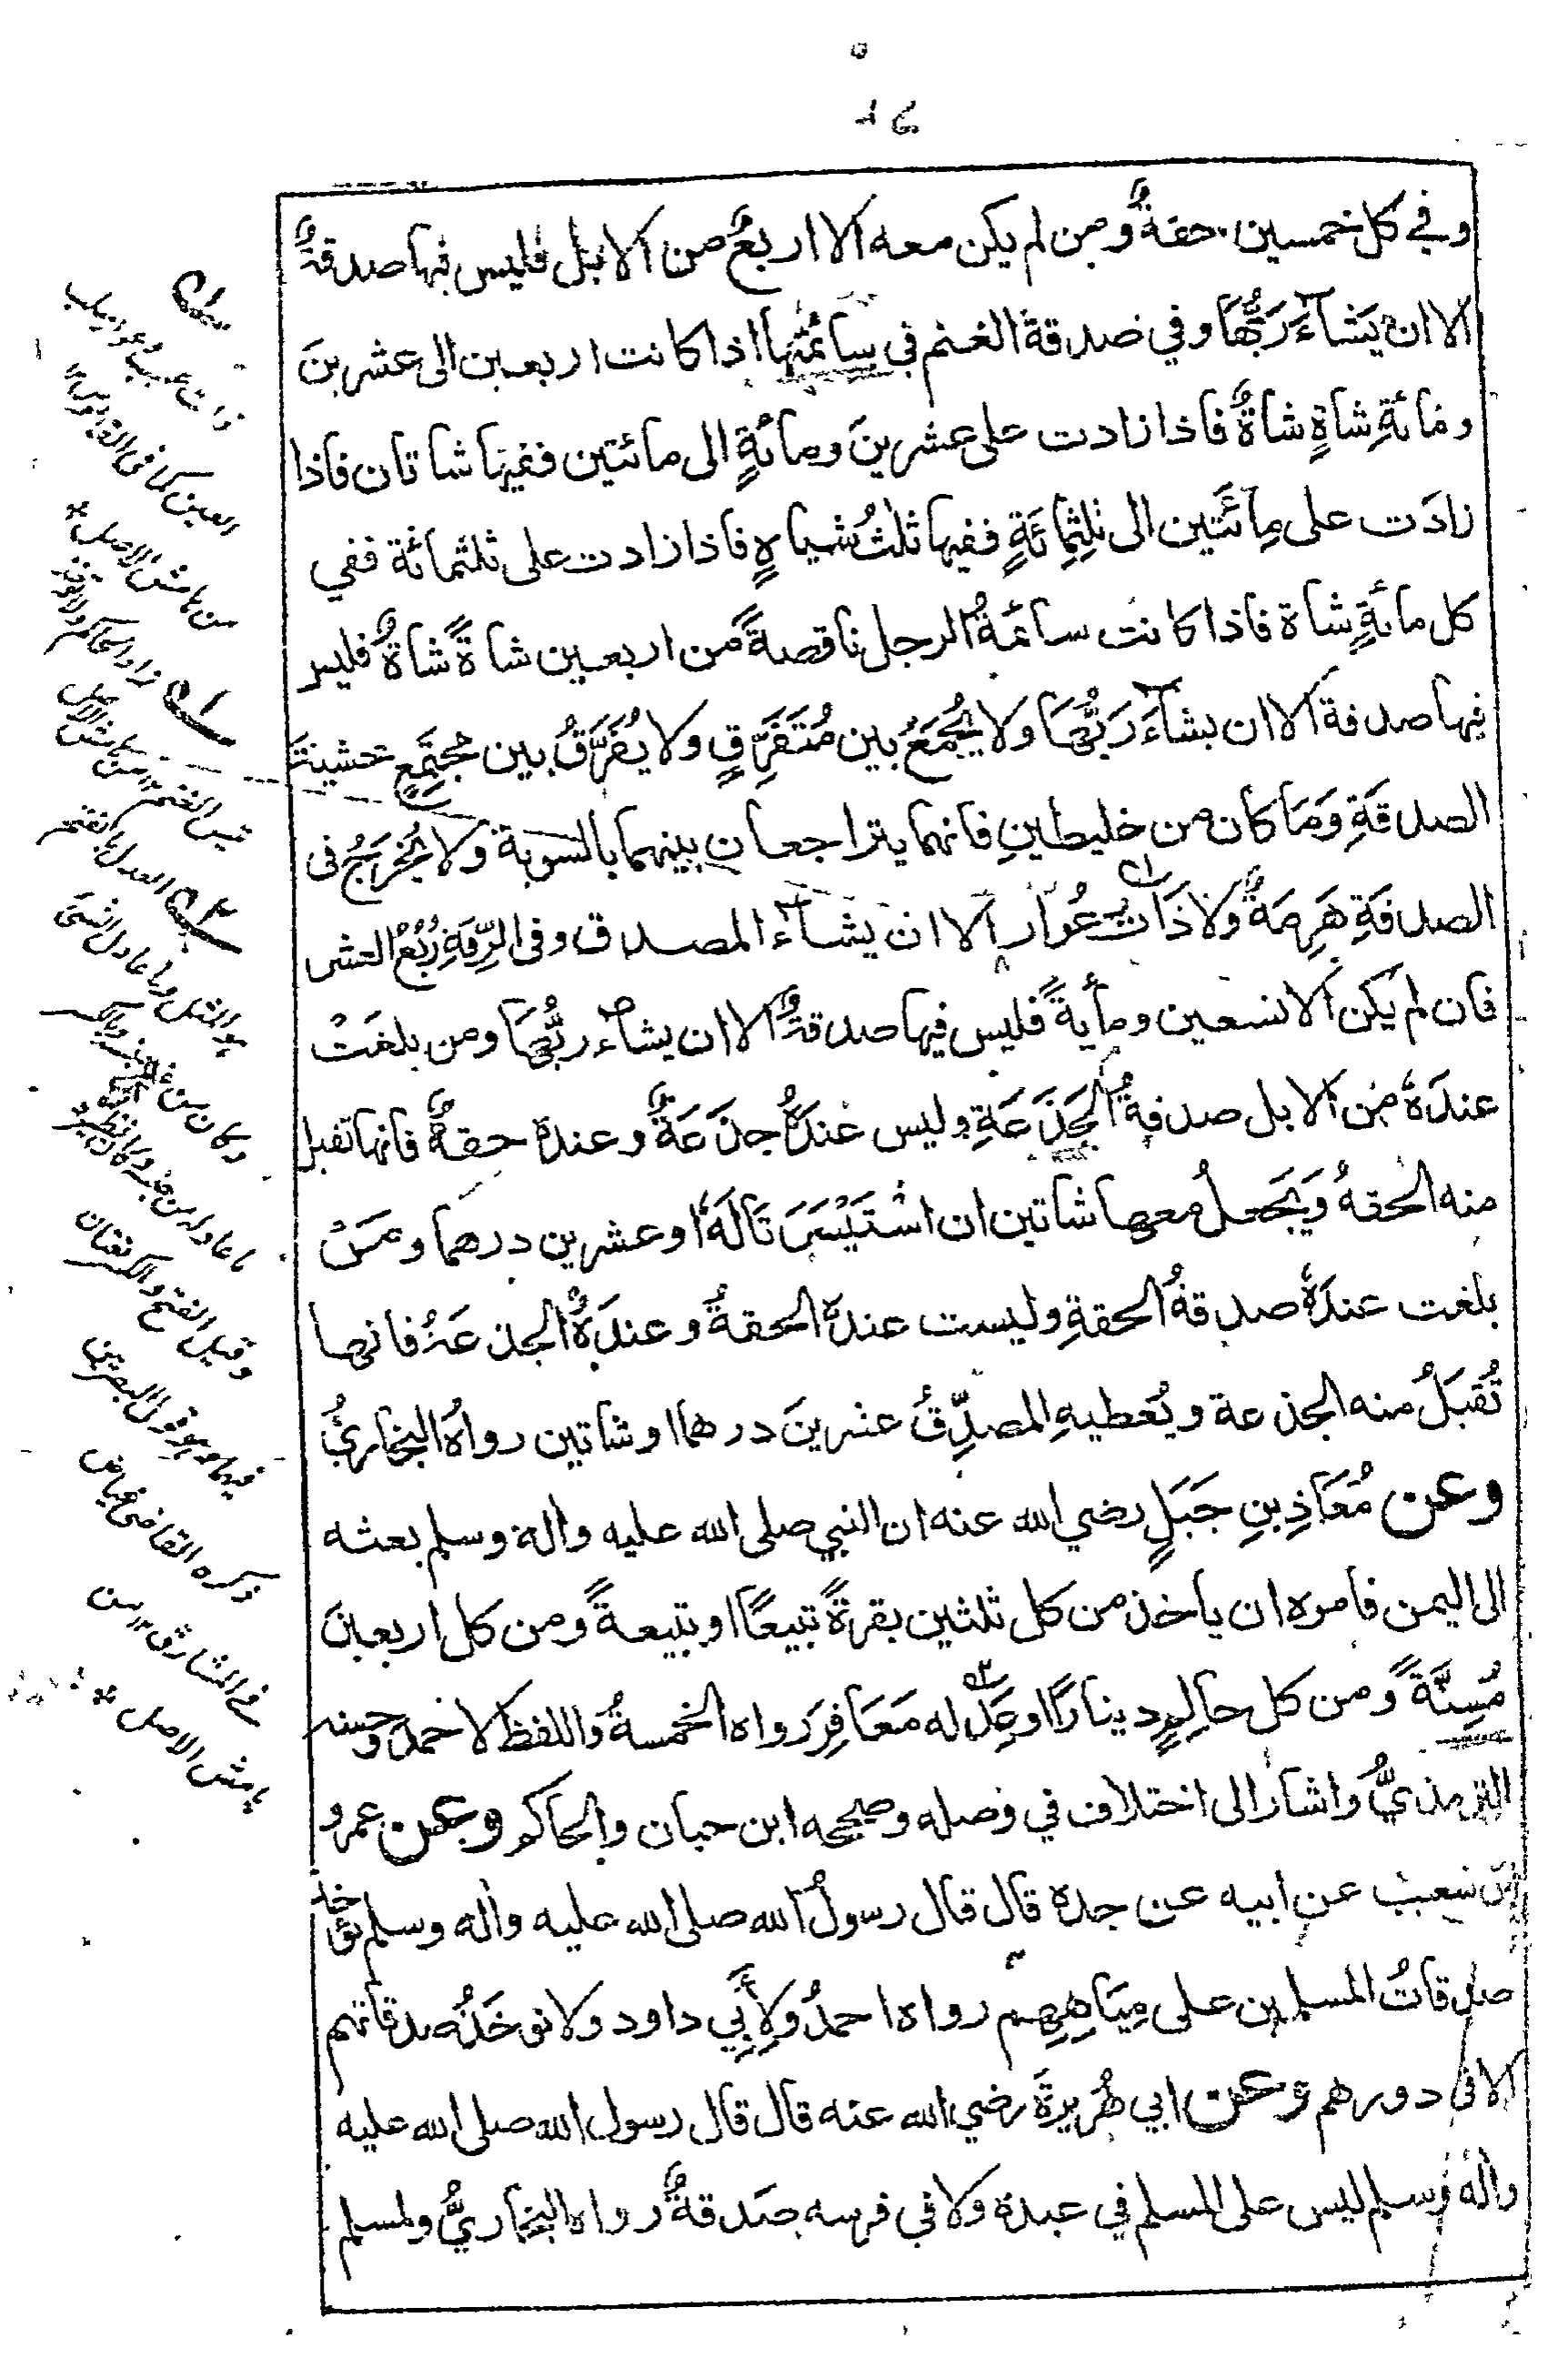 ٩٢
وفي كل خمسين حقةٌ ومن لم يكن معه الا اربعٌ من الابل فليس فيها صدقةٌ
الا ان يَشاءَ رَبُّهَا وفي صدقةِ الغنم في سائمَتِها اذا كانت اربعين الى عشرينَ
ومائةِ شاةٍ شاةٌ فاذا زادت على عشرينَ ومائةٍ الى مائتين ففيها شاتان فاذا
زادَت على مِائَتَين الى ثلثِمائَةٍ ففيها ثلثُ شياهٍ فاذا زادت على ثلثمائة ففي
كل مائةٍ شاة فاذا كانت سائمةُ الرجل ناقصةً من اربعين شاةً شاةٌ فليس
فيها صدقة الا ان يشاءَ رَبُّهَا ولا يُجْمَعُ بين مُتَفَرِّقٍ ولا يُفَرَّقُ بين مُجتَمِعٍ خشيةَ
الصدقَةِ وَمَا كان من خليطينِ فانهما يتراجعان بينهما بالسوية ولا يُخْرَجُ فى
الصدقَةِ هَرِمَةٌ ولا ذَاتُ عُوارٍ الا ان يشاءَ المصدق وفى الرِّقَةِ رُبُعُ العشر
فان لم يكن الا تسعين ومأيةً فليس فيها صدقةٌ الا ان يشاء ربُّهَا ومن بلغَتْ
عندَهُ من الابل صدقةُ الجَذَعَةِ وليس عندَهُ جذَعَةٌ وعنده حقةٌ فانها تقبل
منه الحقةُ وَيَجعلُ معها شاتين ان اسْتَيْسَرَتَا لَهُ او عشرين درهما ومَنْ
بلغت عندَهُ صدقةُ الحقةِ وليست عندَهُ الحقةُ وعندَهُ الجذعَةُ فانها
تُقبَلُ منه الجذعة ويُعطيهِ المصدِّقُ عشرينَ درهما او شاتين رواهُ البخاريُّ
وعن مُعَاذِ بنِ جَبَلٍ رضي الله عنه ان النبي صلى الله عليه واله وسلم بعثه
الى اليمن فامره ان ياخذ من كل ثلثين بقرةً تبيعًا او تبيعةً ومن كل اربعينَ
مُسِنَّةً ومن كل حالِمٍ دينارًا او عَدلَه مَعَافِرَ رواه الخمسةُ واللفظ لاحمدَ وحسنه
الترمذيُّ واشار الى اختلاف في وصله وصححه ابن حبان والحاكم وعن عمرو
بن شعيب عن ابيه عن جده قال قال رسولُ الله صلى الله عليه واله وسلم تؤخذ
صدقاتُ المسلمين على مِيَاهِهِم رواه احمدُ ولِأَبِي داود ولا تؤخَذُ صدقاتهم
الا فى دورهم وعن ابي هُريرةَ رضي الله عنه قال قال رسول الله صلى الله عليه
واله وسلم ليس على المسلم في عبده ولا في فرسه صَدقةٌ رواه البخاريُّ ولمسلم
ذات عيب
العين كما فى القاموس
من هامش الاصل
زاد الحاكم
تيس الغنم من هامش الاصل
العدل بالفتح
هو المثل وما عادل الشئ
وكان من غير جنسه وبالكسر
ما عادله من جنسه وكان نظيره
وقيل الفتح والكسر لغتان
فيهما وهو قول البصريين
ذكره القاضى عياض
في المشارق من
هامش الاصل